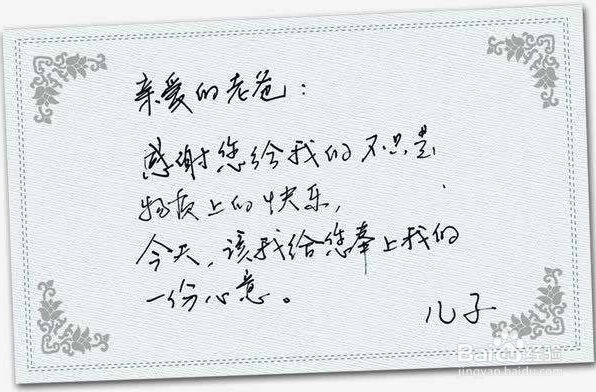 亲爱的老爸：
感谢您给我的不只是
物质上的快乐，
今天，该我给您奉上我的
一份心意。
儿子
Baidu经验
jingyan.baidu.com